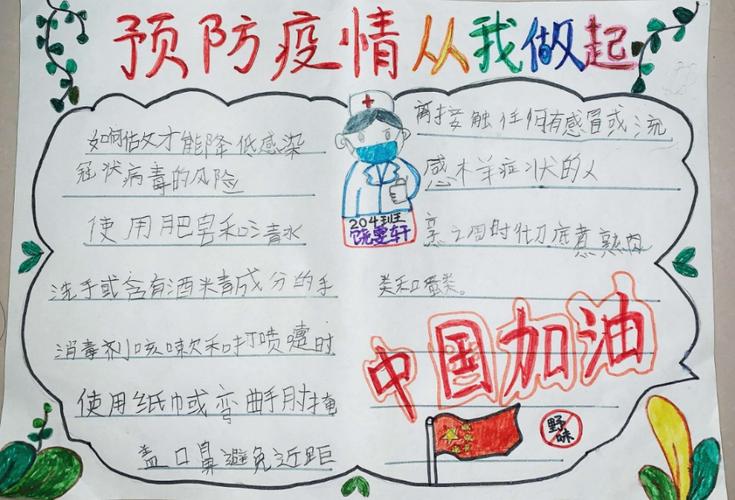 预防疫情从我做起
如何估攵才能降低感染
冠状病毒的风险
使用肥皂和清水
洗手或含有酒精成分的手
消毒剂咳嗽和打喷嚏时
使用纸巾或弯曲手肘掩
盖口鼻避免近距
离接触任何有感冒或流
感样症状的人
时彻底煮熟肉
类和蛋类。
204班
饶雯轩
中国加油
野味